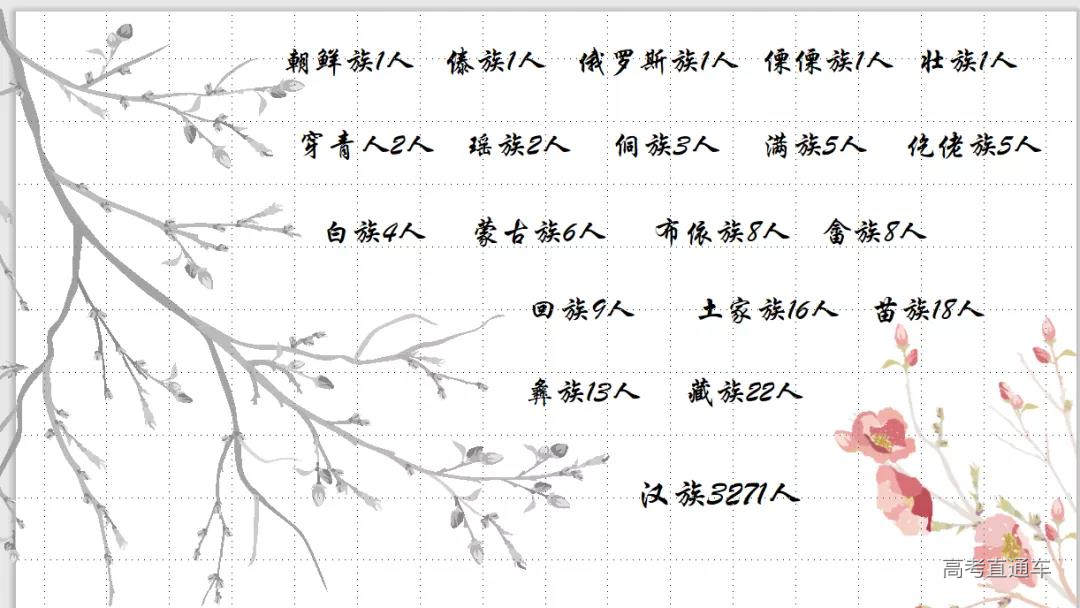 朝鲜族1人 傣族1人 俄罗斯族1人 傈僳族1人 壮族1人
穿青人2人 瑶族2人 侗族3人 满族5人 仡佬族5人
白族4人 蒙古族6人 布依族8人 畲族8人
回族9人 土家族16人 苗族18人
彝族13人 藏族22人
汉族3271人
高考直通车